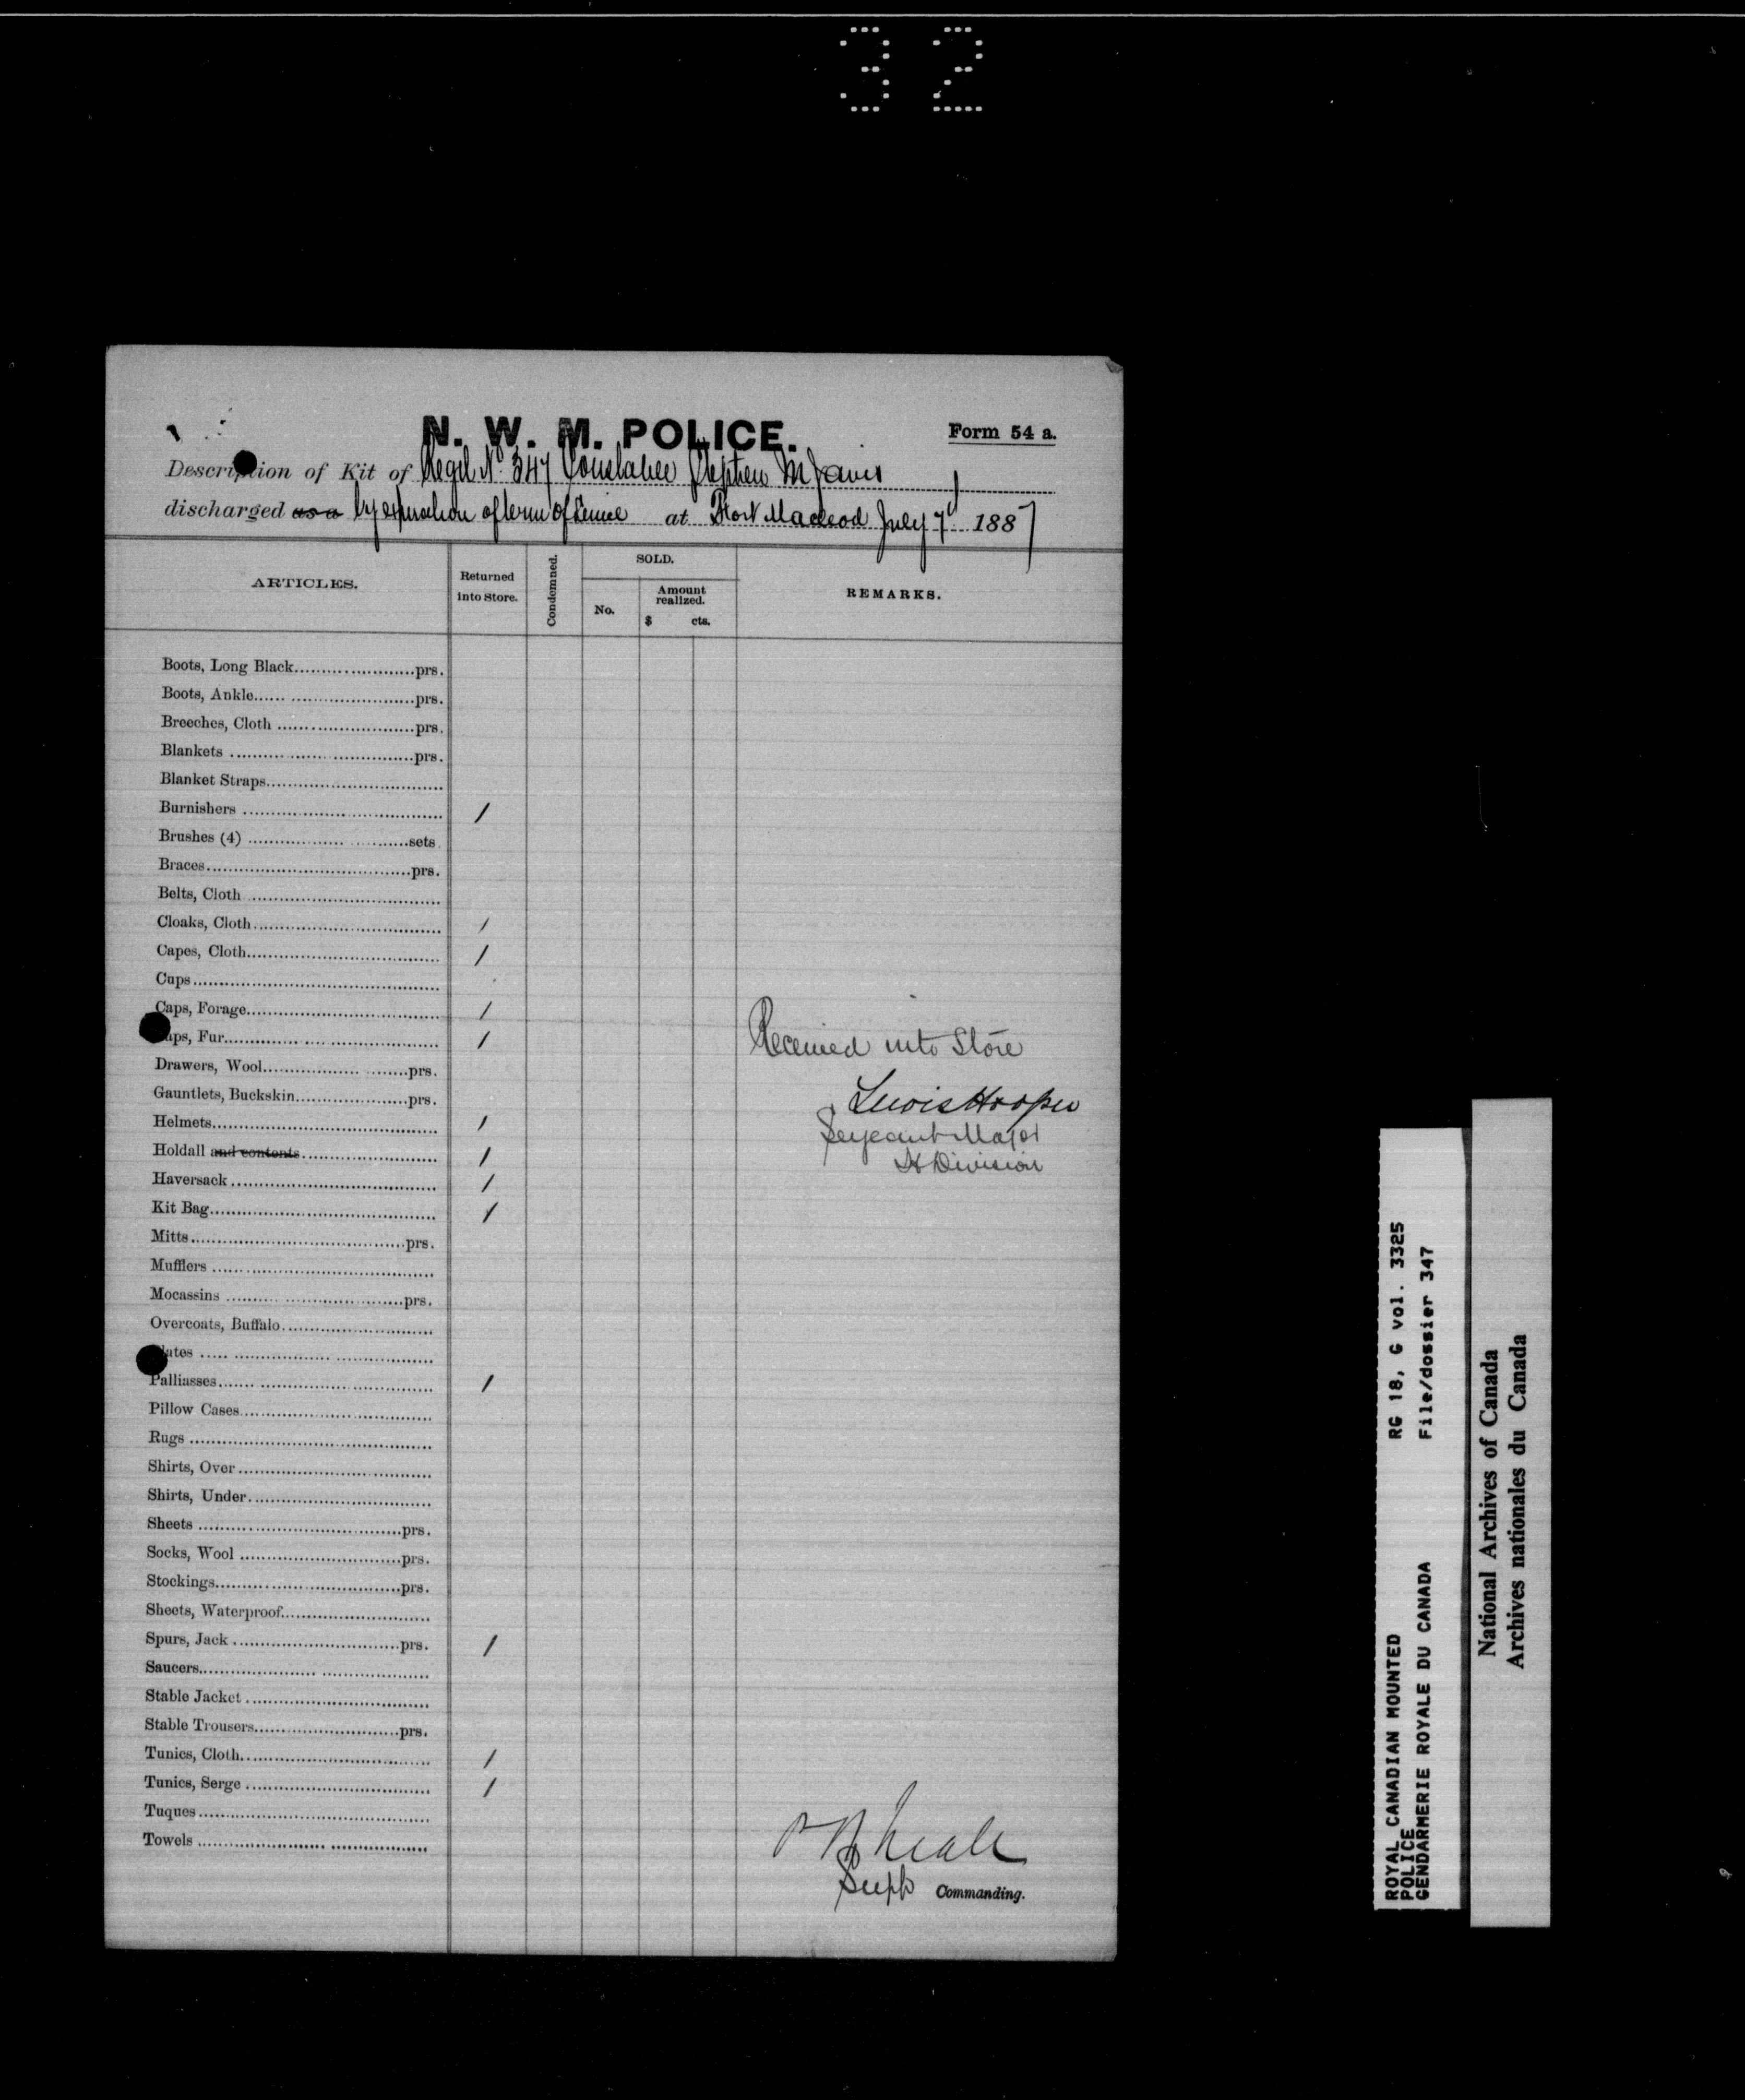 32
N. W. M. POLICE.
Form 54 a.
Description of Kit of Regtl No. 347 Constable Stephen M Jarvis
discharged as a by expiration of term of Service at Fort Macleod July 7th 1887
ARTICLES.
Returned into Store.
Condemned.
SOLD.
No.
Amount realized.
$ cts.
REMARKS.
Boots, Long Black prs.
Boots, Ankle prs.
Breeches, Cloth prs.
Blankets prs.
Blanket Straps
Burnishers 1
Brushes (4) sets
Braces prs.
Belts, Cloth
Cloaks, Cloth 1
Capes, Cloth 1
Cups
Caps, Forage 1
Caps, Fur 1
Received into Store
Drawers, Wool prs.
Gauntlets, Buckskin prs.
Lewis Hooper
Helmets 1
Sergeant Major
Holdall and contents 1
H Division
Haversack 1
Kit Bag 1
Mitts prs.
Mufflers
Mocassins prs.
Overcoats, Buffalo
Plates
Palliasses 1
Pillow Cases
Rugs
Shirts, Over
Shirts, Under
Sheets prs.
Socks, Wool prs.
Stockings prs.
Sheets, Waterproof
Spurs, Jack prs. 1
Saucers
Stable Jacket
Stable Trousers prs.
Tunics, Cloth 1
Tunics, Serge 1
Tuques
Towels
P R Neale
Supt Commanding.
ROYAL CANADIAN MOUNTED RG 18, G vol. 3325
POLICE
GENDARMERIE ROYALE DU CANADA File/dossier 347
National Archives of Canada
Archives nationales du Canada